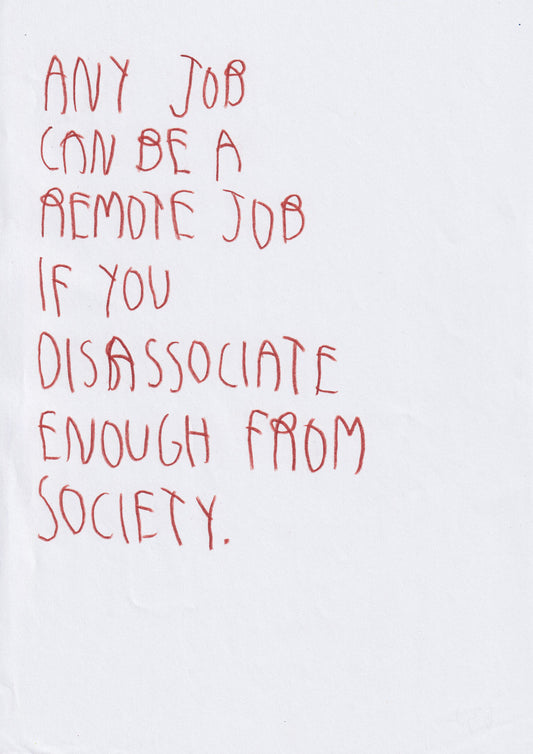 ANY JOB
CAN BE A
REMOTE JOB
IF YOU
DISASSOCIATE
ENOUGH FROM
SOCIETY.